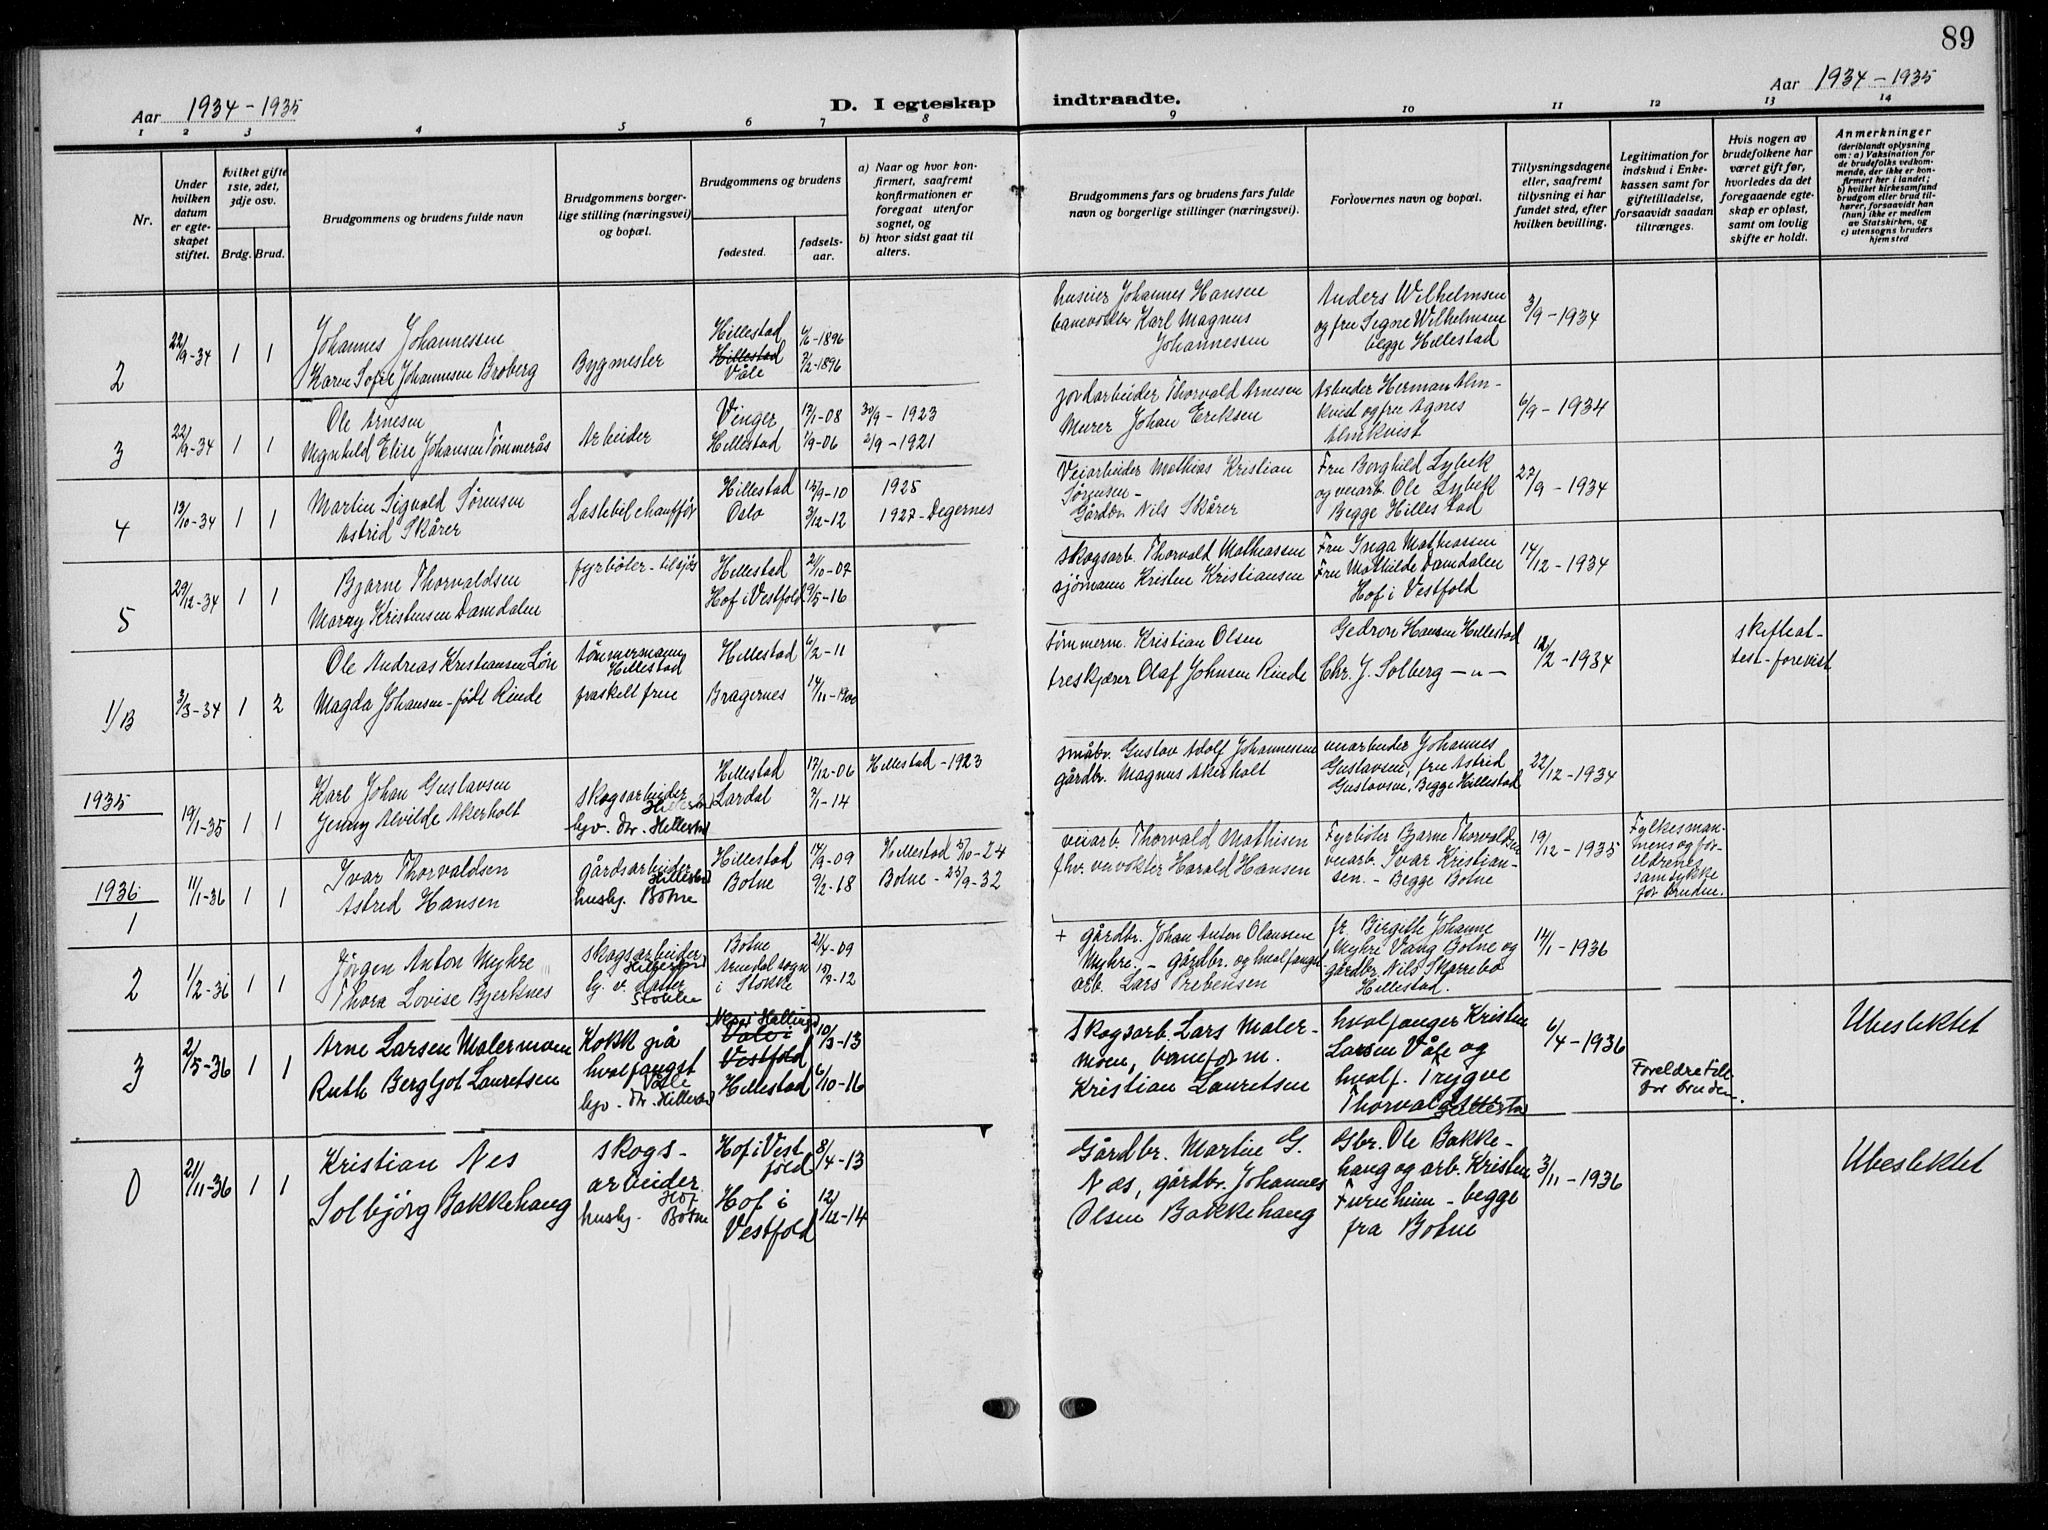 89
Aar 1934 - 1935
D. I egteskap indtraadte.
Aar 1934 - 1935
1 2 3 4 5 6 7 8 9 10 11 12 13 14
Nr.
Under hvilken datum er egteskapet stiftet.
hvilket gifte 1ste, 2det, 3dje osv.
Brdg. Brud.
Brudgommens og brudens fulde navn
Brudgommens borgerlige stilling (næringsvei) og bopæl.
Brudgommens og brudens
fødested.
fødselsaar.
a) Naar og hvor konfirmert, saafremt konfirmationen er foregaat utenfor sognet, og
b) hvor sidst gaat til alters.
Brudgommens fars og brudens fars fulde navn og borgerlige stillinger (næringsvei).
Forlovernes navn og bopæl.
Tillysningsdagene eller, saafremt tillysning ei har fundet sted, efter hvilken bevilling.
Legitimation for indskud i Enkekassen samt for giftetilladelse, forsaavidt saadan tiltrænges.
Hvis nogen av brudefolkene har været gift før, hvorledes da det foregaaende egteskap er opløst, samt om lovlig skifte er holdt.
Anmerkninger
(deriblandt oplysning om: a) Vaksination for de brudefolks vedkommende, der ikke er konfirmert her i landet; b) hvilket kirkesamfund brudgom eller brud tilhører, forsaavidt han (hun) ikke er medlem av Statskirken, og c) utensogns bruders hjemsted
2 22/9-34 1 1
Johannes Johannessen
Karen Sofie Johannesen Broberg
Bygmester
Hillestad
Hillestad
Våle
4/6-1896
7/2-1896
huseier Johannes Hansen
banevokter Karl Magnus
Johannessen
Anders Wilhelmsen
og fru Signe Wilhelmsen
begge Hillestad
3/9-1934
3 22/9-34 1 1
Ole Arnesen
Magnhild Elise Johansen Tømmerås
Arbeider
Vinger
Hillestad
17/1-08
1/9-06
30/9-1923
2/9-1921
jordarbeider Thorvald Arnesen
Murer Johan Eriksen
Arbeider Herman Alm-
kvist og fru Agnes
Almkvist
6/9-1934
4 13/10-34 1 1
Martin Sigvald Sørensen
Astrid Skårer
Lastebilchauffør
Hillestad
Oslo
13/9-10
3/12-12
1925
1927-Degernes
Veiarbeider Mathias Kristian
Sørensen-
Gårdbr. Nils Skårer
Fru Borghild Lybek
og veiarb. Ole Lybek
Begge Hillestad
27/9-1934
5 29/12-34 1 1
Bjarne Thorvaldsen
Marry Kristensen Damdalen
fyrbøter - tilsjøs
Hillestad
Hof i Vestfold
2/10-07
9/5-16
skogsarb. Thorvald Matheassen
sjømann Kristen Kristiansen
Fru Inga Matheassen
Fru Mathilde Damdalen
Hof i Vestfold
14/12-1934
1/13 3/3-34 1 2
Ole Andreas Kristiansen Løn
Magda Johansen - født Rinde
tømmermann
Hillestad
fraskilt frue
Hillestad
Bragernes
6/2-11
14/11-1900
tømmerm. Kristian Olsen
treskjærer Olaf Johnsen Rinde
Gedron Hansen Hillestad
Chr. J. Solberg - " -
12/2-1934
skifteat-
test-forevist
1935
19/1-35 1 1
Karl Johan Gustavsen
Jenny Alvilde Akerholt
skogsarbeider
Hillestad
hjv. dtr. Hillestad
Hillestad
Lardal
17/12-06
3/1-14
Hillestad-1923
småbr. Gustav Adolf Johannesen
gårdbr. Magnus Akerholt
veiarbeider Johannes
Gustavsen, fru Astrid
Gustavsen, Begge Hillestad
22/12-1934
1936
1
11/1-36 1 1
Ivar Thorvaldsen
Astrid Hansen
gårdsarbeider
Hillestad
husbj. Botne
Hillestad
Botne
14/9-09
9/2-18
Hillestad 5/10-24
Botne-25/9-32
veiarb. Thorvald Mathisen
fhv. vevokter Harald Hansen
Fyrbøter Bjarne Thorvaldsen
veiarb. Ivar Kristian-
sen. - Begge Botne
19/12-1935
Fylkesman-
mens og for-
eldrenes
samtykke
for bruden.
2 1/2-36 1 1
Jørgen Anton Myhre
Thora Lovise Bjerknes
skogsarbeider
Hillestad
hj. v. datter
Stokke
Botne
Arnedal sogn
i Stokke
21/4-09
+ gårdbr. Johan Anton Olaussen
Myhre. - gårdbr. og hvalfangst
arb. Lars Prebensen
fr. Birgitte Johanne
Myhre Vang Botne og
gårdbr. Nils Skarrebo
Hillestad.
14/1-1936
3 2/5-36 1 1
Arne Larsen Malermoen
Ruth Bergljot Lauretsen
Kokk på
hvalfangst
Våle
hjv. dtr. Hillestad
Nes i Hallingd
Våle i
Vestfold
Hillestad
10/3-13
6/10-16
Skogsarb. Lars Maler-
moen, baneform.
Kristian Lauretsen
hvalfanger Kristen
Larsen Våle og
hvalf. Trygve
Thorvaldsen
Hillestad
6/4-1936
Foreldre till
for bruden.
Ubeslektet
0 21/11-36 1 1
Kristian Nes
Solbjørg Bakkehaug
skogs-
arbeider
Hof
husbj. Botne
Hof i Vest-
fold
Hof i
Vestfold
8/4-13
12/12-14
Gårdbr. Martin G.
Næs, gårdbr. Johannes
Olsen Bakkehaug
Gbr. Ole Bakke-
haug og arb. Kristen
Furuheim - begge
fra Botne
3/11-1936
Ubeslektet